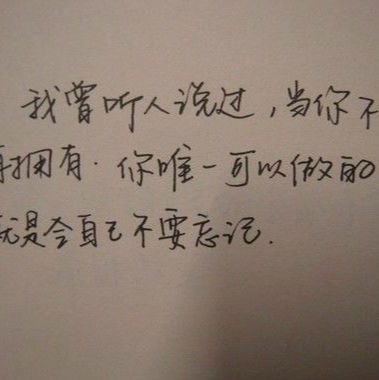 我曾听人说过，当你不
再拥有．你唯一可以做的
就是令自己不要忘记．